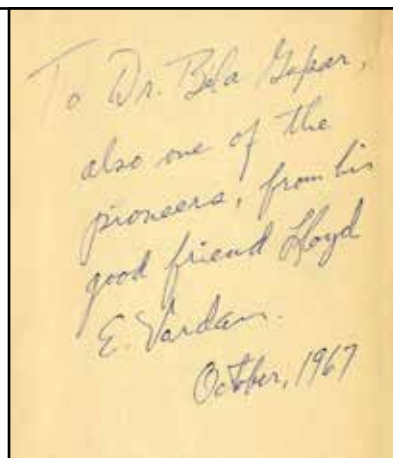 To Dr. Béla Gaspar,
also one of the
pioneers, from his
good friend Lloyd
E. Vardan.
October, 1967